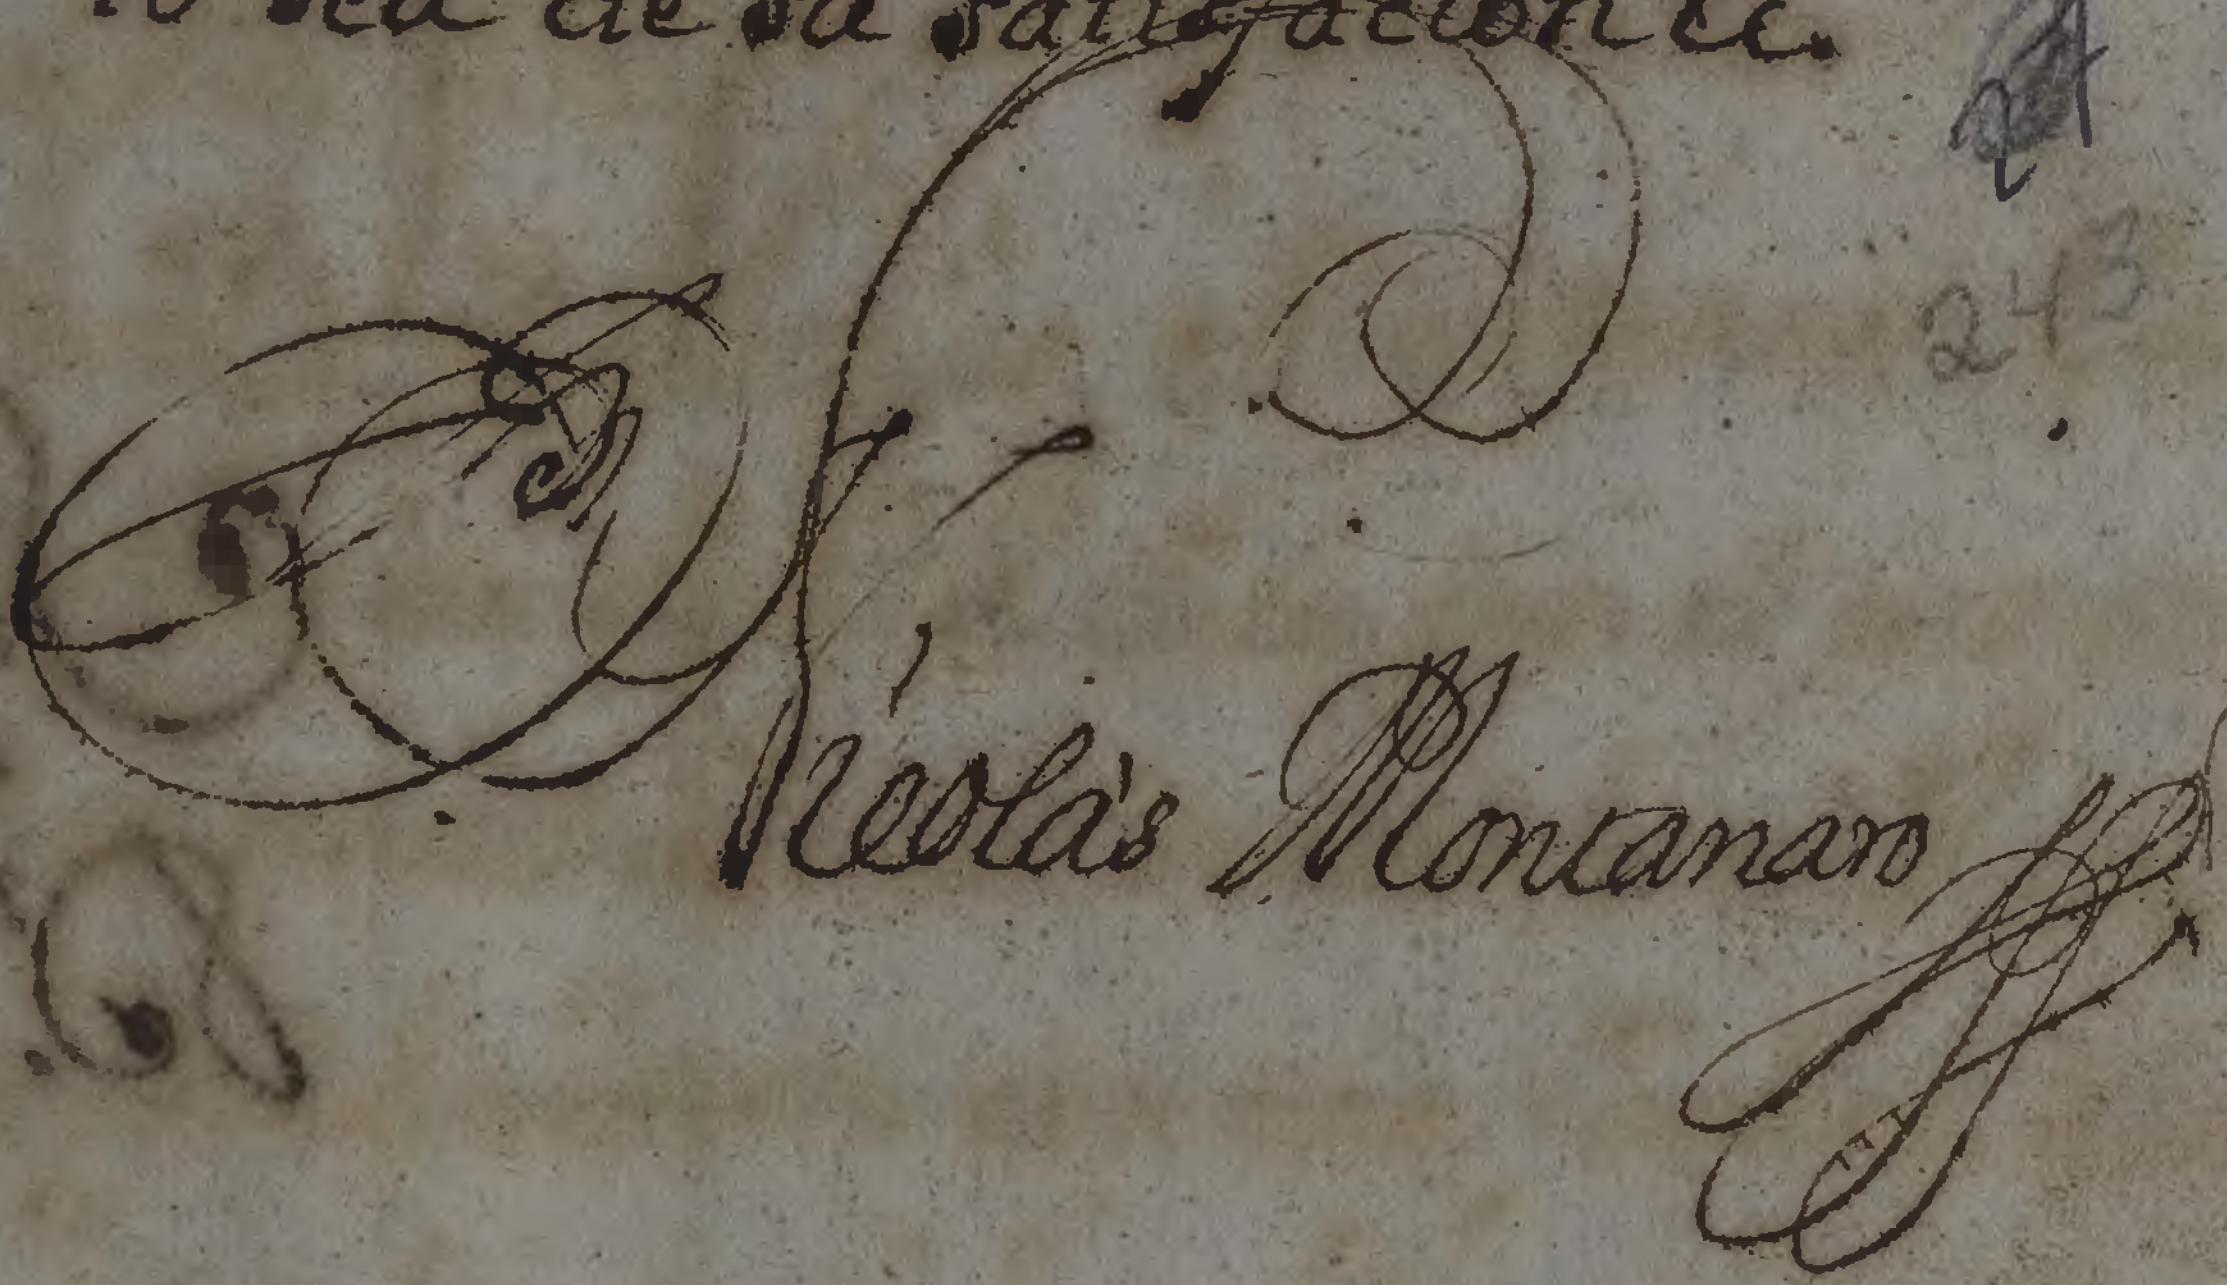 sea de su satisfacion &c.
243
Nicolás Montanaro